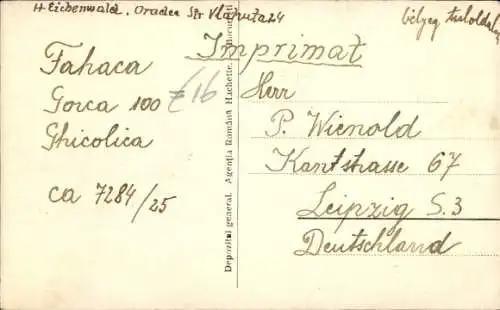 H Eichenwald. Oradea Str Vlahuta 24
bélyeg túloldalon
Imprimat
Fahaca
Gorca 100
Ghicolica
ca 7284/25
€16
Herr
P. Wienold
Kantstrasse 67
Leipzig S.3
Deutschland
Depozitul general. Agenția Română Hachette.